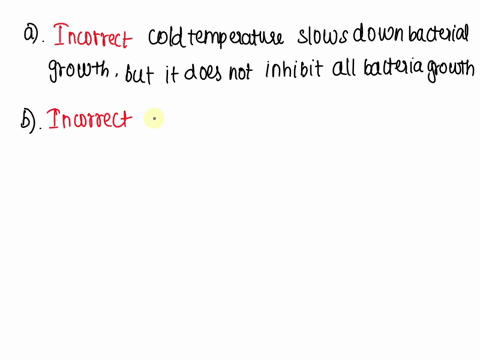 a). Incorrect cold temperature slows down bacterial
growth. but it does not inhibit all bacteria growth
b). Incorrect